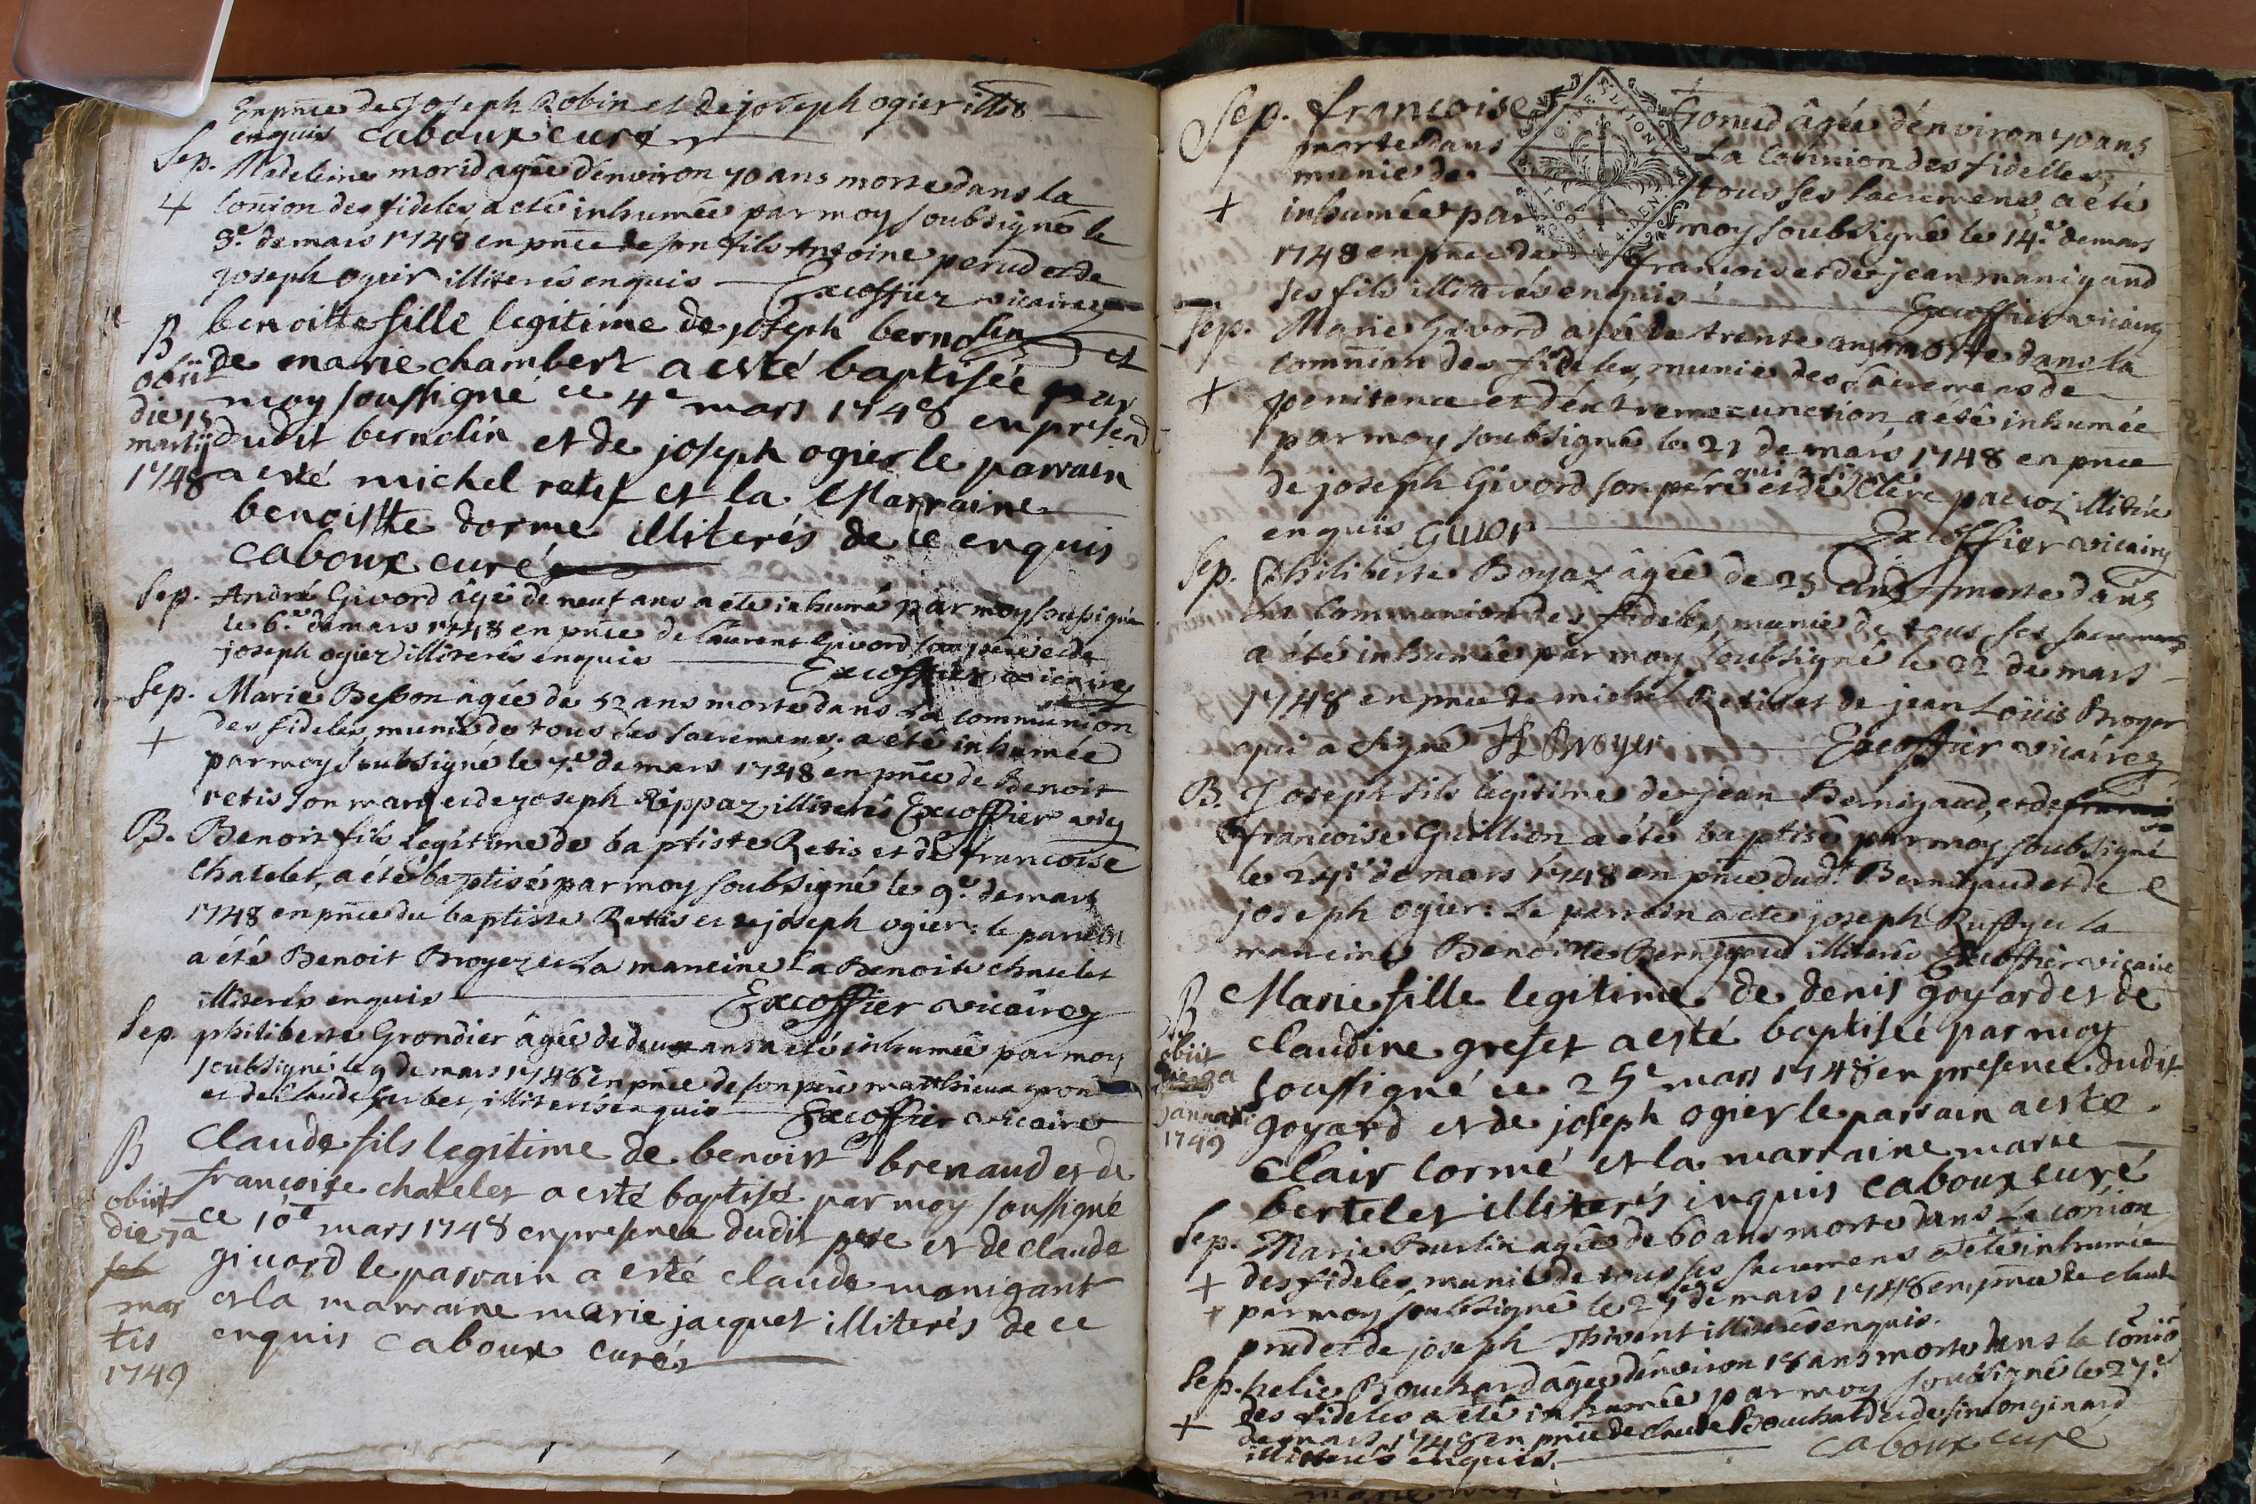 En pn̄ce de Joseph Robin et de joseph ogier illit.s
enquis caboux curé
Sep. Madeleine morid agée d'environ 70 ans morte dans la
+ com̄ion des fideles a eté inhumée par moy soubsigné le
3.e de mars 1748 en pn̄ce de son fils Antoine perud et de
joseph ogier illiterés enquis Excoffier vicaire
B benoitte fille legitime de joseph bernolin et
obiit de marie chambert a esté baptisée par
die 15 moy soussigné ce 4e mars 1748 en presence
martij dudit bernolin et de joseph ogier le parrain
1748 a esté michel retif et la Marraine
benoistte dorme illiterés de ce enquis
caboux curé
Sep. André Givord âgé de neuf ans a eté inhumé par moy soussigné
le 6.e de mars 1748 en pn̄ce de Laurent Givord son pere et de
joseph ogier illiterés enquis Excoffier vicaire
Sep. Marie Besson âgée de 52 ans morte dans la communion
+ des fideles, munie de tous ses sacremens, a eté inhumée
par moy soubsigné le 7.e de mars 1748 en pn̄ce de Benoit
retis son mary et de joseph Rippaz illiterés Excoffier vic
B. Benoit fils legitime de baptiste Retis et de francoise
Chatelet, a été baptisé par moy soubsigné le 9.e de mars
1748 en pn̄ce du baptiste Rettis et de joseph ogier: le parrein
a été Benoit Broyer et la mareine la Benoite chatelet
illiterés enquis Excoffier vicaire
Sep. philiberte Grondier âgée de deux ans a eté inhumée par moy
soubsigné le 9 de mars 1748 en pn̄ce de son pere matthieux gron
et de Claude Gerbet, illiterés enquis Excoffier vicaire
B Claude fils legitime de benoist brenaud et de
francoise chatelet a esté baptisé par moy soussigné
obiit ce 10e mars 1748 en presence dudit pere et de claude
die 7a givord le parrain a esté claude manigant
mar et la marraine marie jacquet illiterés de ce
tis enquis caboux curé
1749
Sep. francoise Gonud âgée d'environ 70 ans
morte dans La com̄union des fidelles,
munie de tous ses sacremens, a eté
+ inhumée par moy soubsigné le 14.e de mars
1748 en pn̄ce de francois et de jean manigand
ses fils illiterés enquis Excoffier vicaire
Sep. Marie Givord agée de trente ans morte dans la
comm̄ion des fideles, munie des sacremens de
+ penitence et d'extreme=unction a eté inhumée
par moy soubsigné le 21 de mars 1748 en pn̄ce
de joseph Givord son pére qui a signé et de Clere pacroz illitéré
enquis Givor Excoffier vicaire
Sep. Philiberte Boyaz âgée de 25 ans morte dans
La Communion des fideles, munie de tous ses sacremens
a été inhumée par moy soubsigné le 22 de mars
1748 en pn̄ce de michel Retis et de jean Loüis Broyer
qui a signé JL Broyer Excoffier vicaire
B. Joseph fils légitime de jean Bernigaud, et de
francoise Guillion a été baptisé par moy soubsigné
le 24.e de mars 1748 en pn̄ce dud.t Bernigaud et de
joseph ogier: Le parrein a eté joseph Ruffy et la
mareine Benoitte Bernigaud illiterés Excoffier vicaire
B Marie fille legitime de denis goyard et de
claudine grefet a esté baptisée par moy
obiit soussigné ce 25e mars 1748 en presence dudit
januari goyard et de joseph ogier le parrain a esté
1749 clair cormé et la marraine marie
bertelet illiterés inquis caboux curé
Sep. Marie Burlin agée de 60 ans morte dans la com̄ion
+ des fideles munie de tous ses sacremens a été inhumée
+ par moy soubsigné le 27e de mars 1748 en pn̄ce de claude
prud et de joseph Thivent illiterés enquis.
Sep. helie Bouchard âgée d'environ 18 ans morte dans la com̄io
des fideles a eté inhumée par moy soubsigné le 27.e
+ de mars 1748 en pn̄ce de claude Bouchard et de simon ginard
illiterés enquis. caboux curé